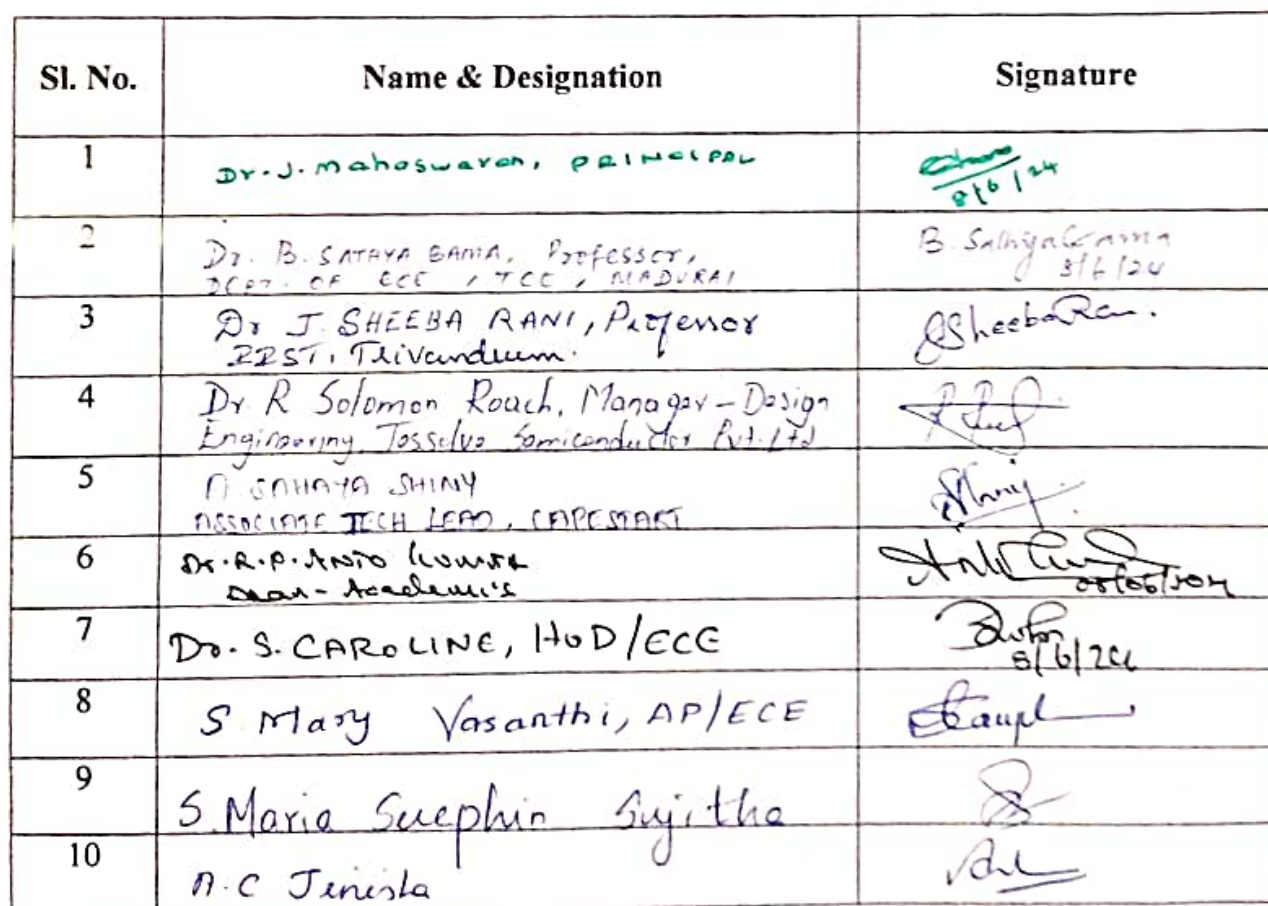 Sl. No. Name & Designation Signature
1 Dr. J. Maheswaran, PRINCIPAL
8/6/24
2 Dr. B. SATHYA BAMA, Professor, B. Sathya Bama
DEPT. OF ECE, TCE, MADURAI 8/6/24
3 Dr J. SHEEBA RANI, Professor JSheebaRani.
IIST, Trivandrum.
4 Dr R Solomon Roach, Manager-Design
Engineering, Tessolve Semiconductor Pvt. Ltd
5 A. SAHAYA SHINY
ASSOCIATE TECH LEAD, CAPESTART
6 Dr. R.P. ANTO KUMAR
Dean-Academics 08/06/2024
7 Dr. S. CAROLINE, HoD/ECE
8/6/24
8 S. Mary Vasanthi, AP/ECE
9 S. Maria Sujitha
10 A.C Jenisha